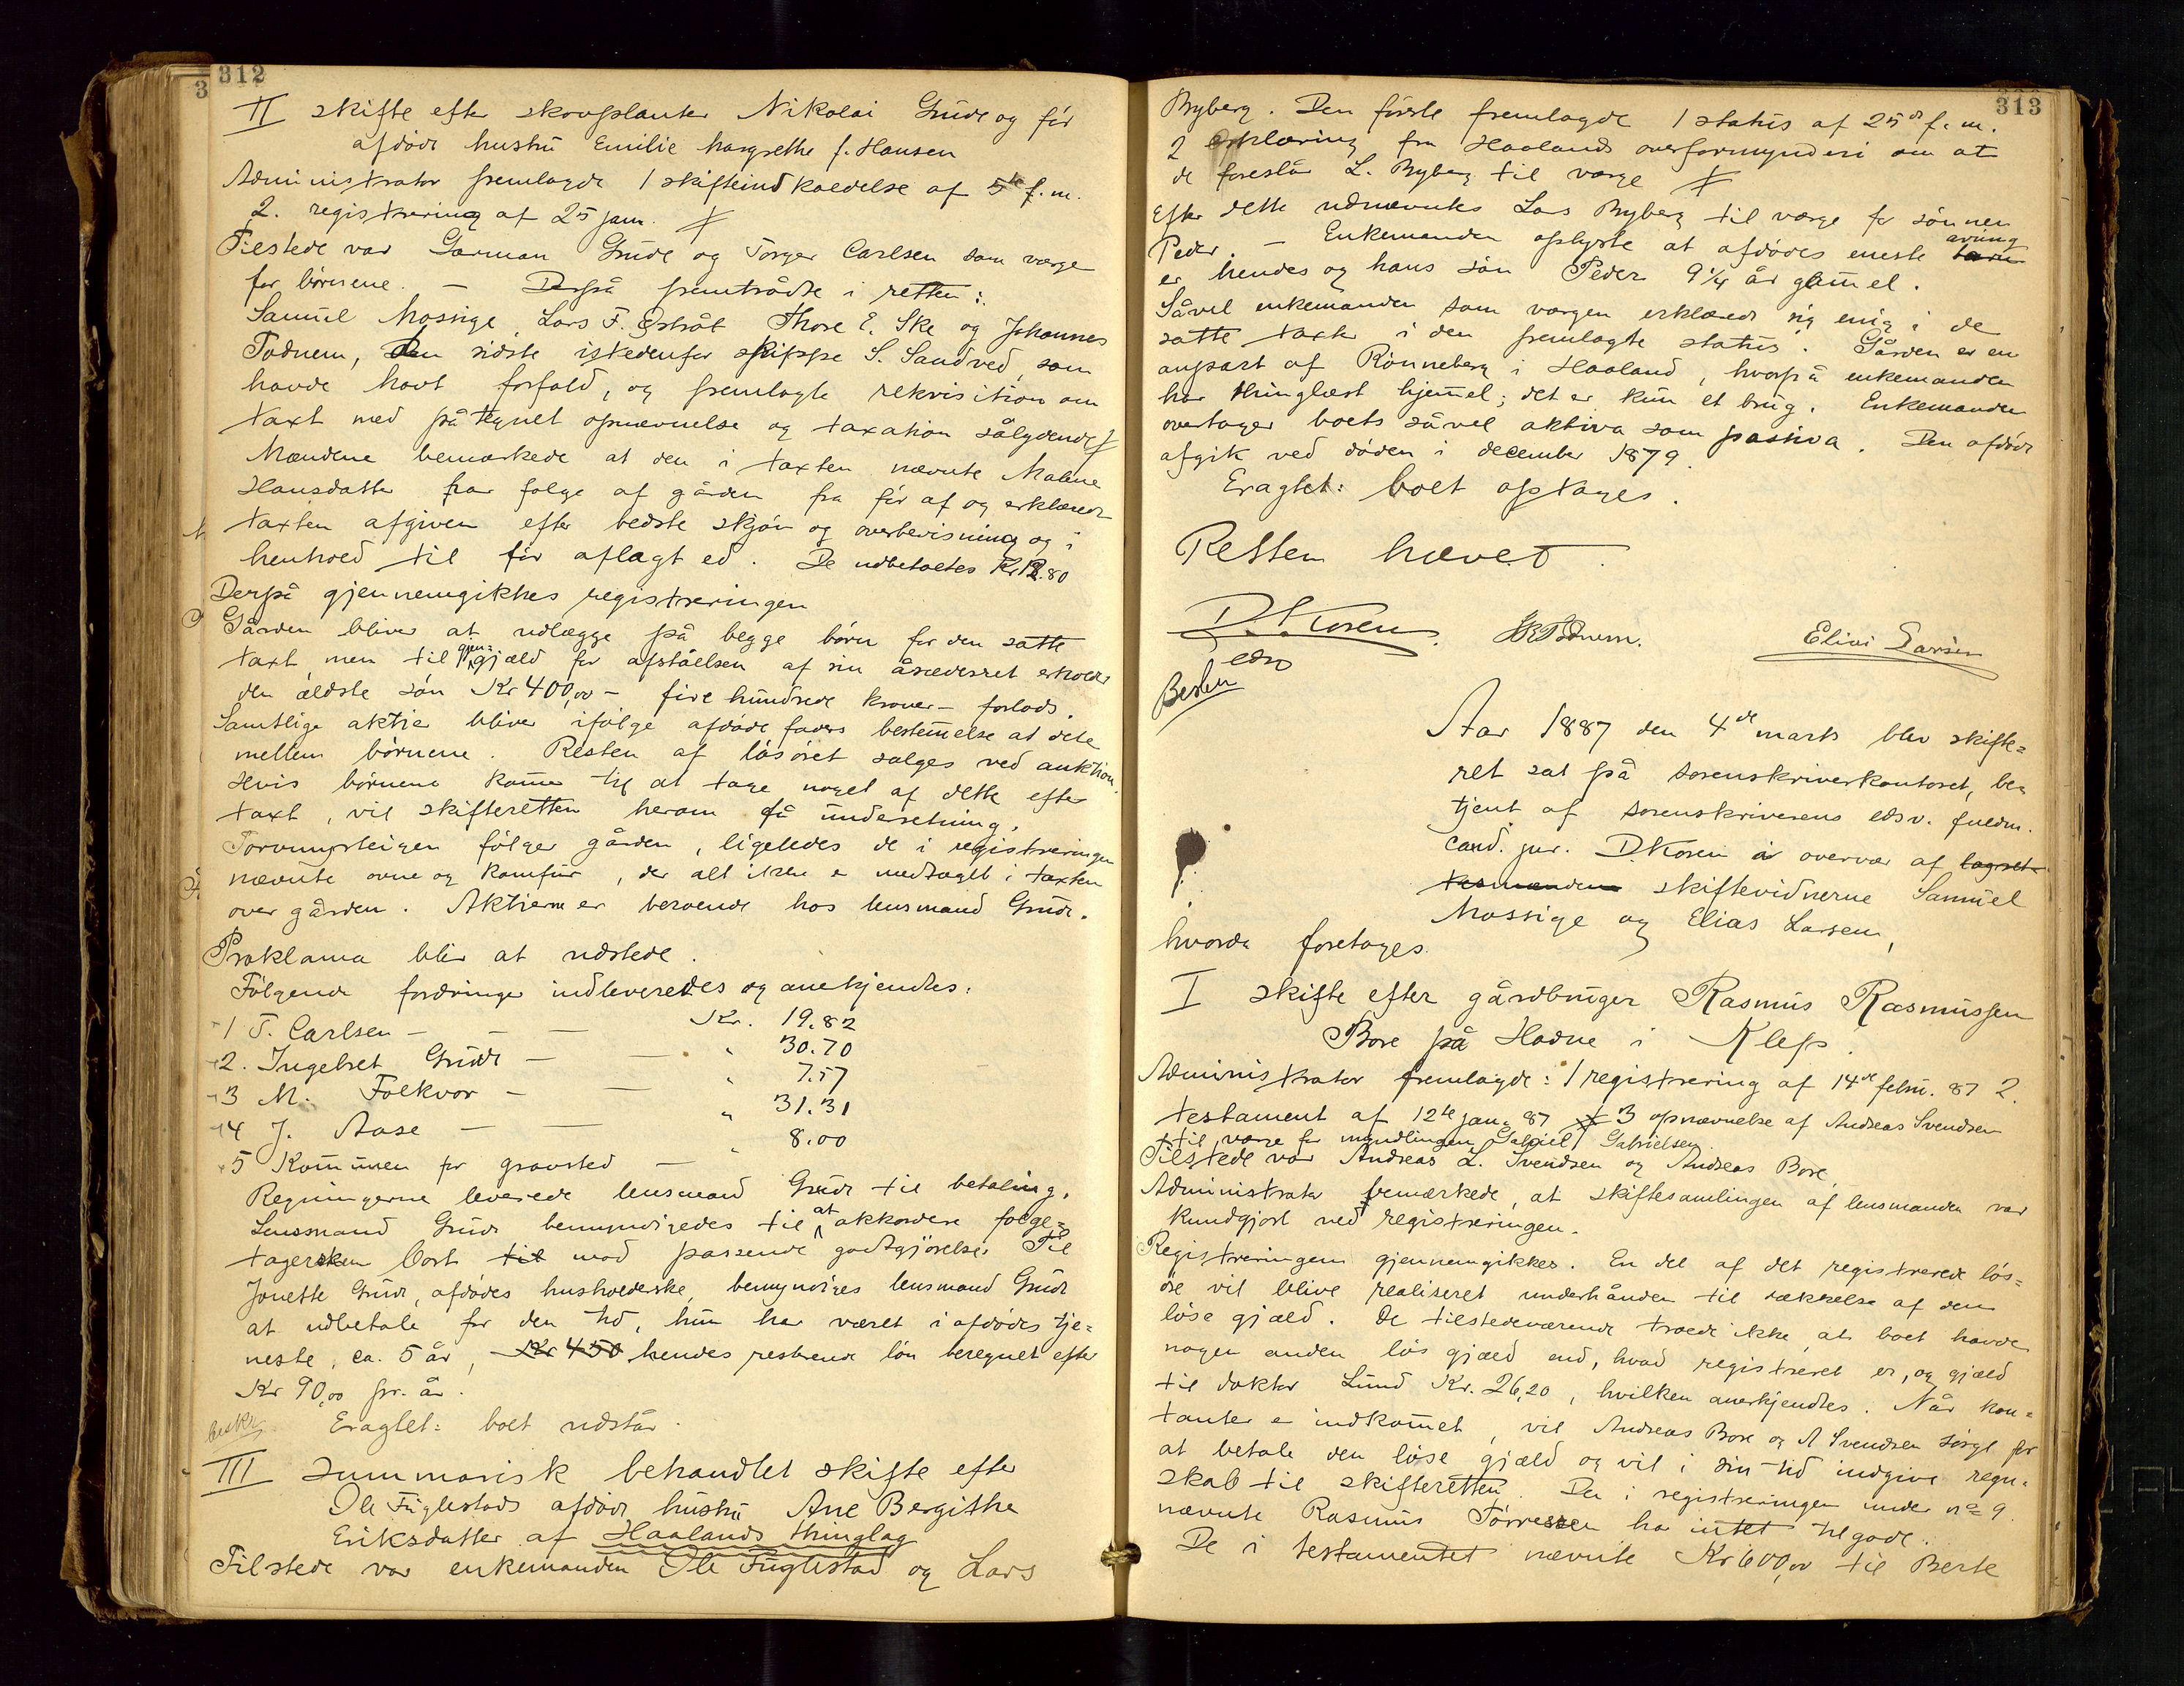 312
3
II skifte efter skovplanter Nikolai Grude og før
afdøde hustru Emilie Margrethe f. Hansen
Administrator fremlagde 1 skifteindkaldelse af 5te f.m.
2. registrering af 25 jan. #
Tilstede var Garman Grude og Torger Carlsen som værge
for børnene. — Derpå fremtrådte i retten:
Samuel Mossige, Lars F. Østråt Thore E. Ske og Johannes
Todnem, den sidste istedenfor S. Sandved, som
havde havt forfald, og fremlagte rekvisition om
taxt med påtegnet opnævnelse og taxation sålydende #
Mændene bemærkede at den i taxten nævnte Malene
Hansdatter har folge af gården fra før af og erklærede
taxten afgiven efter bedste skjøn og overbevisning og i
henhold til før aflagt ed. De udbetaltes Kr 12.80
Derpå gjennemgikkes registreringen
Gården bliver at udlægge på begge børn for den satte
taxt men til gjengjæld for afståelsen af sin åsædesret erholder
den ældste søn Kr 400,00 – fire hundrede kroner – forlods.
Samtlige aktier bliver ifølge afdøde faders bestemmelse at dele
mellem børnene. Resten af løsøret sælges ved auktion.
Hvis børnene kommer til at tage noget af dette efter
taxt, vil skifteretten herom få underretning.
Torvmyrteigen følger gården, ligeledes de i registreringen
nævnte ovne og komfur, der alt ikke er medtaget i taxten
over gården. Aktierne er beroende hos lensmand Grude.
Proklama blir at udstede.
Følgende fordringer indleveredes og anerkjendtes:
1 T. Carlsen — — — Kr. 19.82
2. Ingebret Grude — — " 30.70
3 M. Folkvor — — " 7.57
4 J. Aase — — " 31.31
5 Kommunen for gravsted — " 8.00
Regningerne leverede lensmand Grude til betaling.
Lensmand Grude bemyndigedes til at akkordere folge=
tagersken bort til mod passende godtgjørelse. Til
Jonette Grude, afdødes husholderske, bemyndiges lensmand Grude
at udbetale for den tid, hun har været i afdødes tje=
neste, ca. 5 år, Kr 450 hendes resterende løn beregnet efter
Kr 90,00 pr. år.
beskr Eragtet: boet udstår.
III Summarisk behandlet skifte efter
Ole Fuglestads afdøde hustru Ane Bergithe
Eriksdatter af Haalands thinglag
Tilstede var enkemanden Ole Fuglestad og Lars
313
Byberg. Den første fremlagde 1 status af 25de f.m.
2 erklæring fra Haalands overformynderi om at
de foreslår L. Byberg til værge #
Efter dette udnævntes Lars Byberg til værge for sønnen
Peder. — Enkemanden oplyste at afdødes eneste barn arving
er hendes og hans søn Peder 9 1/4 år gammel.
Såvel enkemanden som værgen erklærede sig enig i de
satte taxter i den fremlagte status. Gården er en
anpart af Rønneberg i Haaland, hvorpå enkemanden
har thinglæst hjemmel; det er kun et brug. Enkemanden
overtager boets såvel aktiva som passiva. Den afdøde
afgik ved døden i december 1879.
Eragtet: boet optages.
Retten hævet.
D. Koren
edsv
JR Todnem.
Elias Larsen
Besken
Aar 1887 den 4de marts blev skifte=
ret sat på sorenskriverkontoret, be=
tjent af sorenskriverens edsv. fuldm.
cand. jur. D. Koren i overvær af lagret=
tesmændene skiftevidnerne Samuel
Mossige og Elias Larsen,
hvorda foretoges.
I skifte efter gårdbruger Rasmus Rasmussen
Bore på Hodne i Klep.
Administrator fremlagde: 1 registrering af 14de febru. 87 2.
testament af 12te jan. 87 # 3 opnævnelse af Andreas Svendsen
til værge for myndlingen Gabriel Gabrielsen.
Tilstede var Andreas L. Svendsen og Andreas Bore.
Administrator bemærkede, at skiftesamlingen af lensmanden var
kundgjort ved registreringen.
Registreringen gjennemgikkes. En del af det registrerede løs=
øre vil blive realiseret underhånden til dækkelse af den
løse gjæld. De tilstedeværende troede ikke, at boet havde
nogen anden løs gjæld end, hvad registreret er, og gjæld
til doktor Lund Kr. 26,20, hvilken anerkjendtes. Når kon=
tanter er indkommet, vil Andreas Bore og A Svendsen sørge for
at betale den løse gjæld og vil i sin tid indgive regn=
skab til skifteretten. Den i registreringen under no 9
nævnte Rasmus Tørressen har intet tilgode.
De i testamentet nævnte Kr 600,00 til Berte